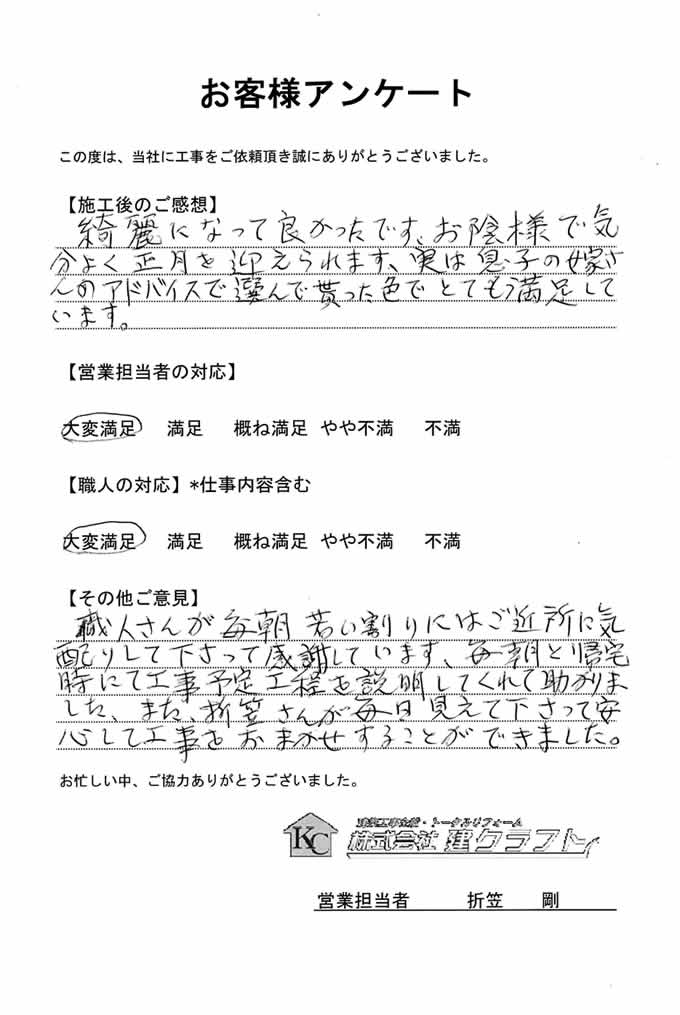 お客様アンケート
この度は、当社に工事をご依頼頂き誠にありがとうございました。
【施工後のご感想】
綺麗になって良かったです、お陰様で気
分よく正月を迎えられます、実は息子の嫁さ
んのアドバイスで選んで貰った色でとても満足して
います。
【営業担当者の対応】
大変満足 満足 概ね満足 やや不満 不満
【職人の対応】*仕事内容含む
大変満足 満足 概ね満足 やや不満 不満
【その他ご意見】
職人さんが毎朝若い割りにはご近所に気
配りして下さって感謝しています、毎朝と帰宅
時にて工事予定工程を説明してくれて助かりま
した、また、折笠さんが毎日見えて下さって安
心して工事をおまかせすることができました。
お忙しい中、ご協力ありがとうございました。
KC
建築工事全般・トータルリフォーム
株式会社 建クラフト
営業担当者 折笠 剛